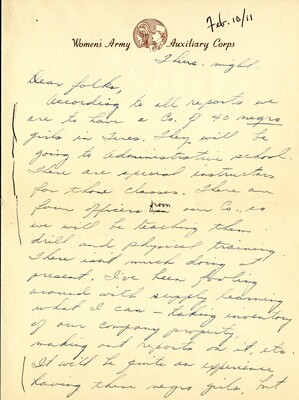 Feb. 10/11
Women's Army Auxiliary Corps
Thurs. night.
Dear folks,
According to all reports we
are to have a Co. of 40 negro
girls in Tues. They will be
going to Administrative school.
There are special instructors
for those classes. There are
four officers from our Co., so
we will be teaching them
drill and physical training.
There isnt much doing at
present. I've been fooling
around with supply learning
what I can - taking inventory
of our company property,
making out reports on it, etc.
It will be quite an experience
having these negro girls, but